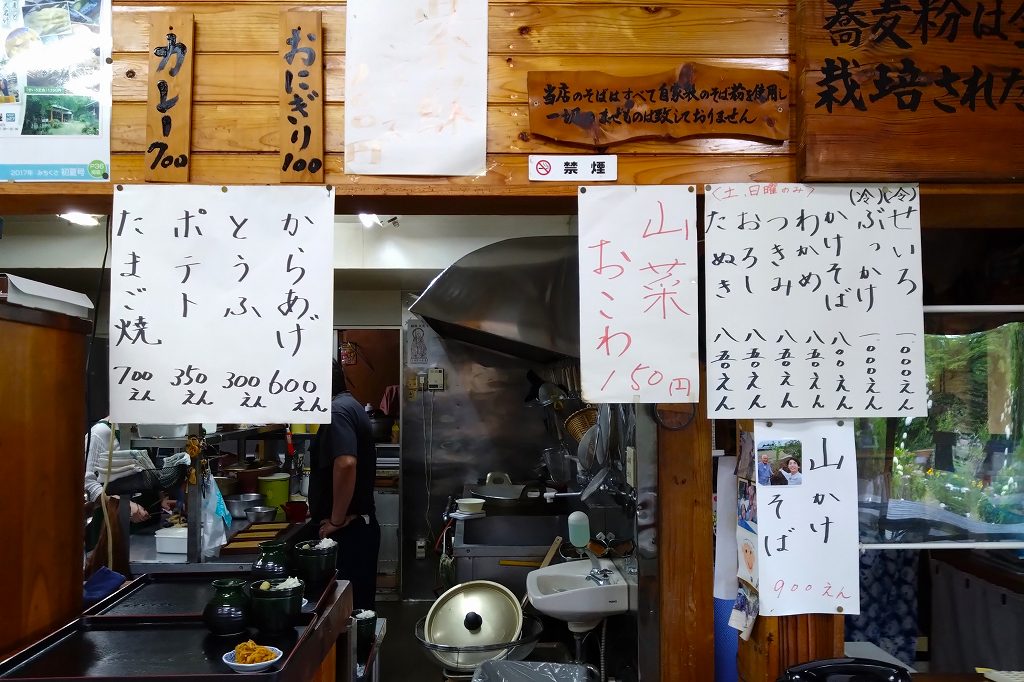 カレー 700
おにぎり 100
当店のそばはすべて自家製のそば粉を使用し
一切つませものは致しておりません
蕎麦粉は
栽培された
禁煙
2017年 みちくさ 初夏号
からあげ 600えん
とうふ 300えん
ポテト 350えん
たまご焼 700えん
山菜
おこわ
150円
(冷)せいろ 一000えん
(冷)ぶっかけ 一000えん
かけそば 八00えん
わかめ 八五0えん
つきみ 八五0えん
おろし 八五0えん
たぬき 八五0えん
<土、日曜のみ>
山かけ
そば
900えん